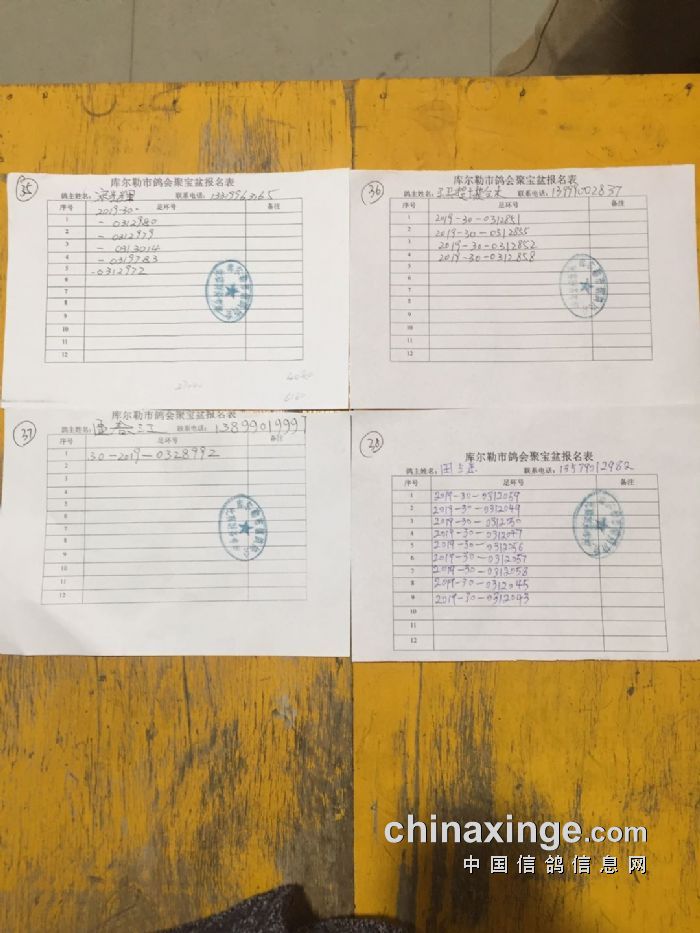 35
库尔勒市鸽会聚宝盆报名表
鸽主姓名: 联系电话:
序号 足环号 备注
1 2019-30-
2 - 0312980
3 - 0312979
- 0313014
4 - 0319783
5 -0312972
6
7
8
9
10
11
12
36
库尔勒市鸽会聚宝盆报名表
鸽主姓名: 联系电话: 13999002837
序号 足环号 备注
1 2019-30-0312851
2 2019-30-0312855
3 2019-30-0312852
4 2019-30-0312858
5
6
7
8
9
10
11
12
37
库尔勒市鸽会聚宝盆报名表
鸽主姓名: 联系电话: 13899019997
序号 足环号 备注
1 30-2019-0328992
2
3
4
5
6
7
8
9
10
11
12
38
库尔勒市鸽会聚宝盆报名表
鸽主姓名: 联系电话: 13579012982
序号 足环号 备注
1 2019-30-0312059
2 2019-30-0312049
3 2019-30-0312050
4 2019-30-0312047
5 2019-30-0312056
6 2019-30-0312057
7 2019-30-0312058
8 2019-30-0312045
9 2019-30-0312043
10
11
12
chinaxinge.com
中国信鸽信息网